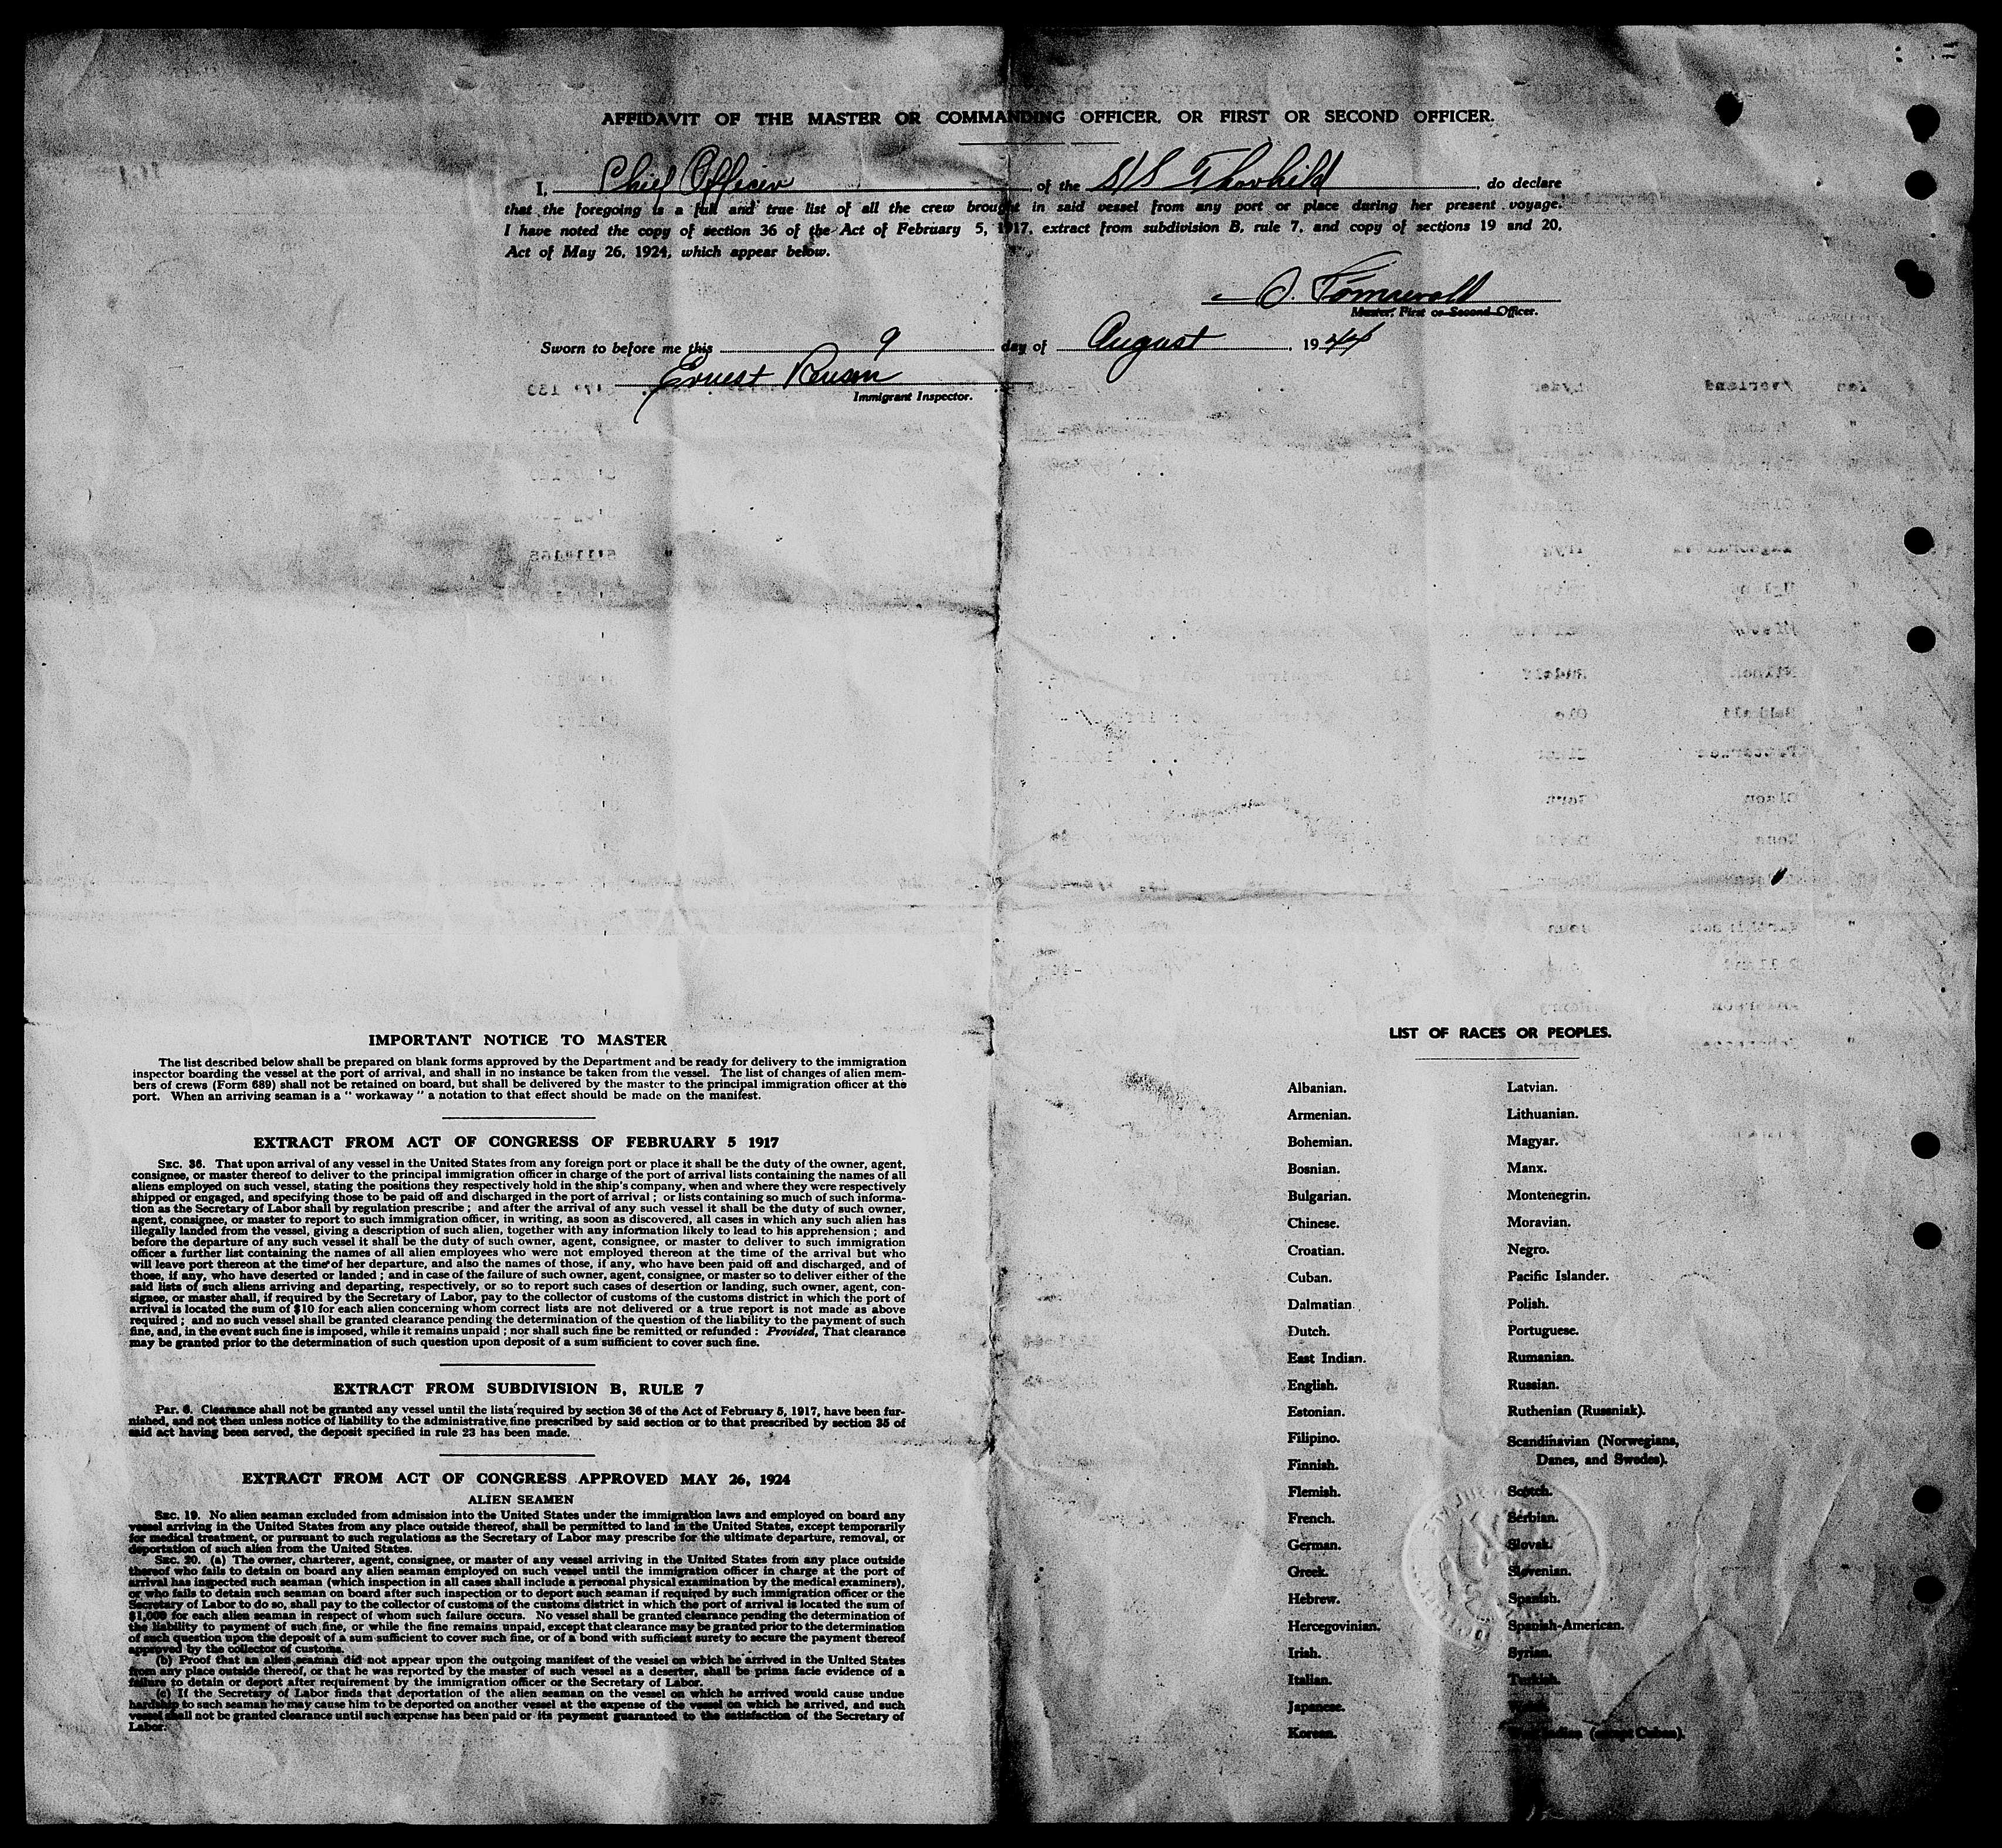 AFFIDAVIT OF THE MASTER OR COMMANDING OFFICER, OR FIRST OR SECOND OFFICER.
I, Chief Officer of the S/S Thorhild, do declare
that the foregoing is a full and true list of all the crew brought in said vessel from any port or place during her present voyage.
I have noted the copy of section 36 of the Act of February 5, 1917, extract from subdivision B, rule 7, and copy of sections 19 and 20,
Act of May 26, 1924, which appear below.
Master, First or Second Officer.
Sworn to before me this 9 day of August, 1944
Ernest
Immigrant Inspector.
IMPORTANT NOTICE TO MASTER
The list described below shall be prepared on blank forms approved by the Department and be ready for delivery to the immigration
inspector boarding the vessel at the port of arrival, and shall in no instance be taken from the vessel. The list of changes of alien mem-
bers of crews (Form 689) shall not be retained on board, but shall be delivered by the master to the principal immigration officer at the
port. When an arriving seaman is a " workaway " a notation to that effect should be made on the manifest.
EXTRACT FROM ACT OF CONGRESS OF FEBRUARY 5 1917
SEC. 36. That upon arrival of any vessel in the United States from any foreign port or place it shall be the duty of the owner, agent,
consignee, or master thereof to deliver to the principal immigration officer in charge of the port of arrival lists containing the names of all
aliens employed on such vessel, stating the positions they respectively hold in the ship's company, when and where they were respectively
shipped or engaged, and specifying those to be paid off and discharged in the port of arrival ; or lists containing so much of such informa-
tion as the Secretary of Labor shall by regulation prescribe ; and after the arrival of any such vessel it shall be the duty of such owner,
agent, consignee, or master to report to such immigration officer, in writing, as soon as discovered, all cases in which any such alien has
illegally landed from the vessel, giving a description of such alien, together with any information likely to lead to his apprehension ; and
before the departure of any such vessel it shall be the duty of such owner, agent, consignee, or master to deliver to such immigration
officer a further list containing the names of all alien employees who were not employed thereon at the time of the arrival but who
will leave port thereon at the time of her departure, and also the names of those, if any, who have been paid off and discharged, and of
those, if any, who have deserted or landed ; and in case of the failure of such owner, agent, consignee, or master so to deliver either of the
said lists of such aliens arriving and departing, respectively, or so to report such cases of desertion or landing, such owner, agent, con-
signee, or master shall, if required by the Secretary of Labor, pay to the collector of customs of the customs district in which the port of
arrival is located the sum of $10 for each alien concerning whom correct lists are not delivered or a true report is not made as above
required ; and no such vessel shall be granted clearance pending the determination of the question of the liability to the payment of such
fine, and, in the event such fine is imposed, while it remains unpaid ; nor shall such fine be remitted or refunded : Provided, That clearance
may be granted prior to the determination of such question upon deposit of a sum sufficient to cover such fine.
EXTRACT FROM SUBDIVISION B, RULE 7
Par. 6. Clearance shall not be granted any vessel until the lists required by section 36 of the Act of February 5, 1917, have been fur-
nished, and not then unless notice of liability to the administrative fine prescribed by said section or to that prescribed by section 35 of
said act having been served, the deposit specified in rule 23 has been made.
EXTRACT FROM ACT OF CONGRESS APPROVED MAY 26, 1924
ALIEN SEAMEN
SEC. 19. No alien seaman excluded from admission into the United States under the immigration laws and employed on board any
vessel arriving in the United States from any place outside thereof, shall be permitted to land in the United States, except temporarily
for medical treatment, or pursuant to such regulations as the Secretary of Labor may prescribe for the ultimate departure, removal, or
deportation of such alien from the United States.
SEC. 20. (a) The owner, charterer, agent, consignee, or master of any vessel arriving in the United States from any place outside
thereof who fails to detain on board any alien seaman employed on such vessel until the immigration officer in charge at the port of
arrival has inspected such seaman (which inspection in all cases shall include a personal physical examination by the medical examiners),
or who fails to detain such seaman on board after such inspection or to deport such seaman if required by such immigration officer or the
Secretary of Labor to do so, shall pay to the collector of customs of the customs district in which the port of arrival is located the sum of
$1,000 for each alien seaman in respect of whom such failure occurs. No vessel shall be granted clearance pending the determination of
the liability to payment of such fine, or while the fine remains unpaid, except that clearance may be granted prior to the determination
of such question upon the deposit of a sum sufficient to cover such fine, or of a bond with sufficient surety to secure the payment thereof
approved by the collector of customs.
(b) Proof that an alien seaman did not appear upon the outgoing manifest of the vessel on which he arrived in the United States
from any place outside thereof, or that he was reported by the master of such vessel as a deserter, shall be prima facie evidence of a
failure to detain or deport after requirement by the immigration officer or the Secretary of Labor.
(c) If the Secretary of Labor finds that deportation of the alien seaman on the vessel on which he arrived would cause undue
hardship to such seaman he may cause him to be deported on another vessel at the expense of the vessel on which he arrived, and such
vessel shall not be granted clearance until such expense has been paid or its payment guaranteed to the satisfaction of the Secretary of
Labor.
LIST OF RACES OR PEOPLES.
Albanian.
Armenian.
Bohemian.
Bosnian.
Bulgarian.
Chinese.
Croatian.
Cuban.
Dalmatian.
Dutch.
East Indian.
English.
Estonian.
Filipino.
Finnish.
Flemish.
French.
German.
Greek.
Hebrew.
Hercegovinian.
Irish.
Italian.
Japanese.
Korean.
Latvian.
Lithuanian.
Magyar.
Manx.
Montenegrin.
Moravian.
Negro.
Pacific Islander.
Polish.
Portuguese.
Rumanian.
Russian.
Ruthenian (Russniak).
Scandinavian (Norwegians,
Danes, and Swedes).
Scotch.
Serbian.
Slovak.
Slovenian.
Spanish.
Spanish-American.
Syrian.
Turkish.
Welsh.
West Indian (except Cuban).